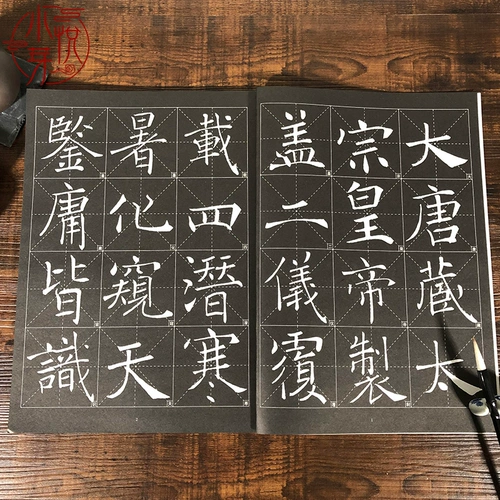 大唐藏太
宗皇帝製
盖二儀覆
載四潛寒
暑化窺天
鑒庸皆識